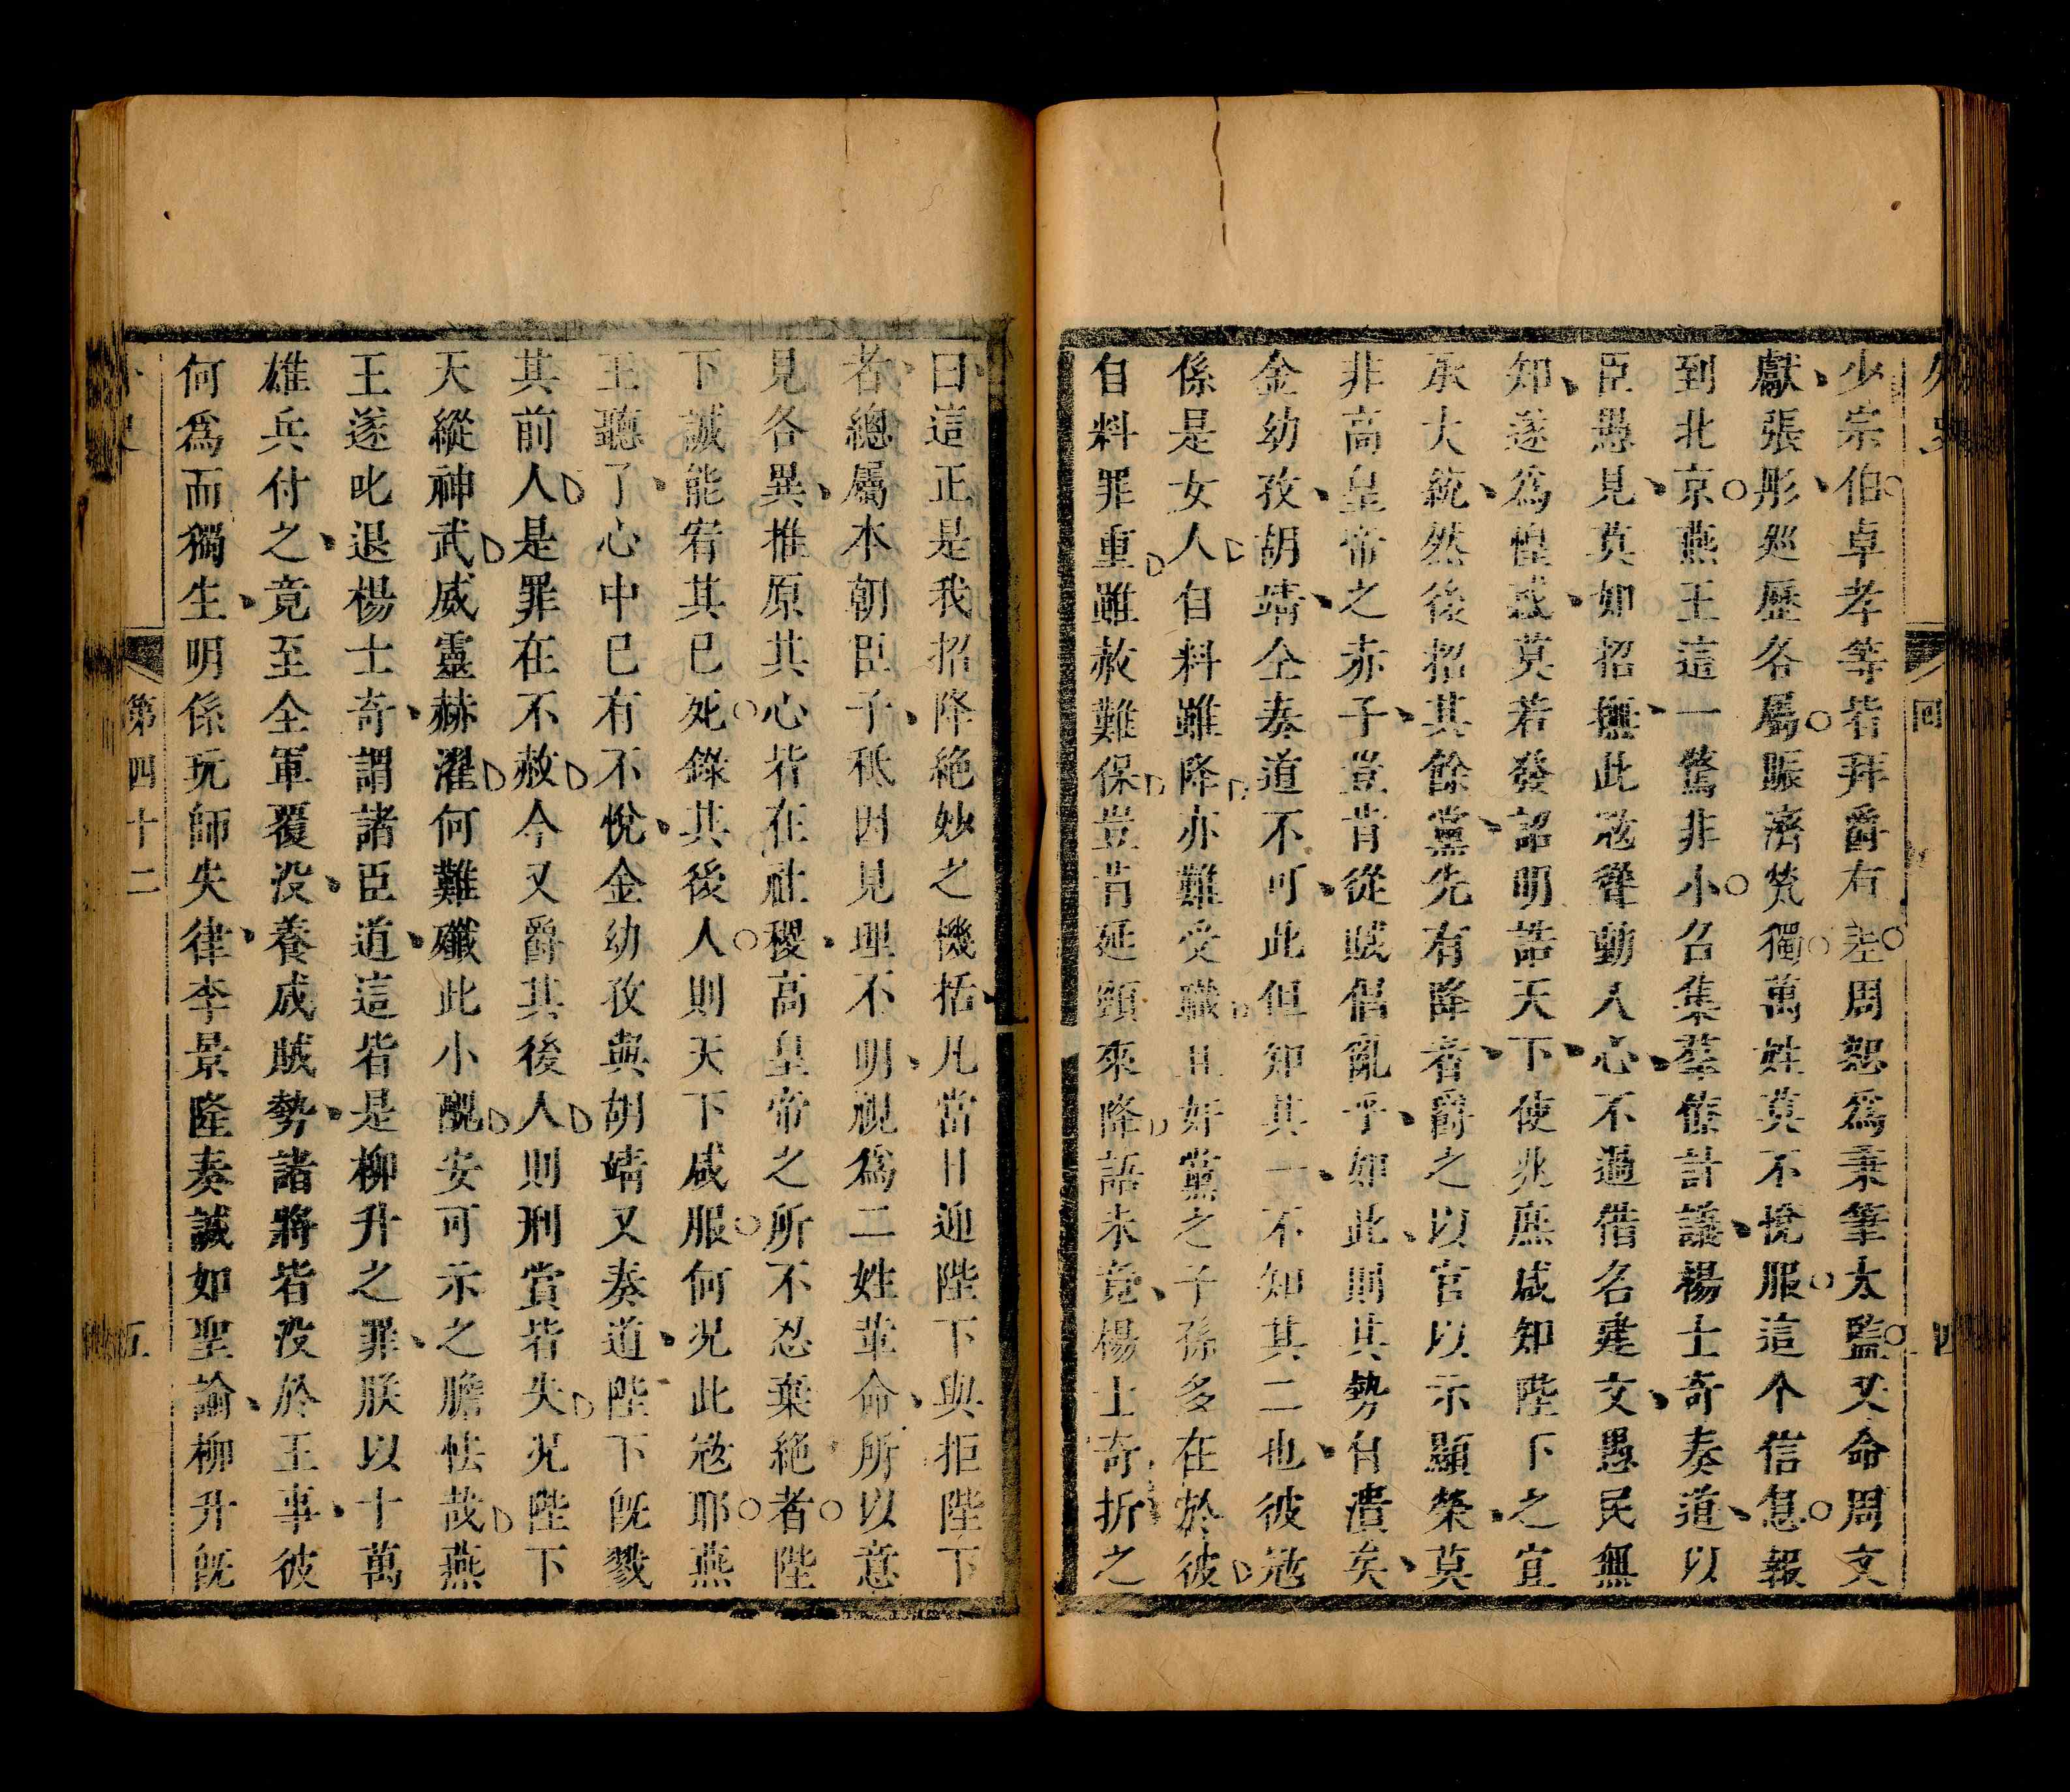 外史
回
四
少宗伯卓孝等皆拜爵有差周恕爲秉筆太監又命周文
獻張彤廵歷各屬賑濟煢獨萬姓莫不悅服這个信息報
到北京燕王這一驚非小名集羣僚計議楊士奇奏道以
臣愚見莫如招撫此冦聳動人心不過借名建文愚民無
知遂爲惶惑莫若發詔明誥天下使兆庶咸知陛下之宜
承大統然後招其餘黨先有降者爵之以官以示顯榮莫
非高皇帝之赤子豈肯從賊倡亂乎如此則其勢自潰矣
金幼孜胡靖全奏道不可此但知其一不知其二也彼冦
係是女人自料雖降亦難受職且奸黨之子孫多在於彼
自料罪重雖赦難保豈肯延頸來降語未竟楊士奇折之
曰這正是我招降絶妙之機括凡當日迎陛下與拒陛下
者總屬本朝臣子秪因見理不明視爲二姓革命所以意
見各異推原其心皆在社稷高皇帝之所不忍棄絶者陛
下誠能宥其已死錄其後人則天下咸服何况此冦耶燕
王聽了心中已有不悅金幼孜與胡靖又奏道陛下旣戮
其前人是罪在不赦今又爵其後人則刑賞皆失况陛下
天縱神武威靈赫濯何難殲此小醜安可示之膽怯哉燕
王遂叱退楊士奇謂諸臣道這皆是柳升之罪朕以十萬
雄兵付之竟至全軍覆没養成賊勢諸將皆没於王事彼
何爲而獨生明係玩師失律李景隆奏誠如聖諭柳升旣
第四十二
五